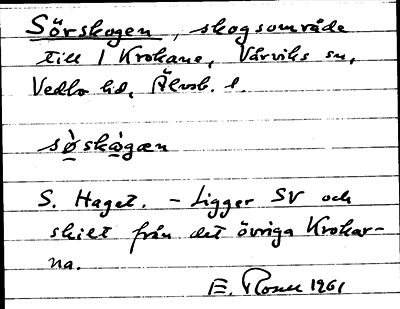 Sörskogen, skogsområde
till 1 Krokane, Vårviks sn,
Vedbo hd, Älvsb. l.
sò̱skò̱gæn
S. Haget. – Ligger SV och
skilt från det övriga Krokar-
na.
E. Rosell 1961